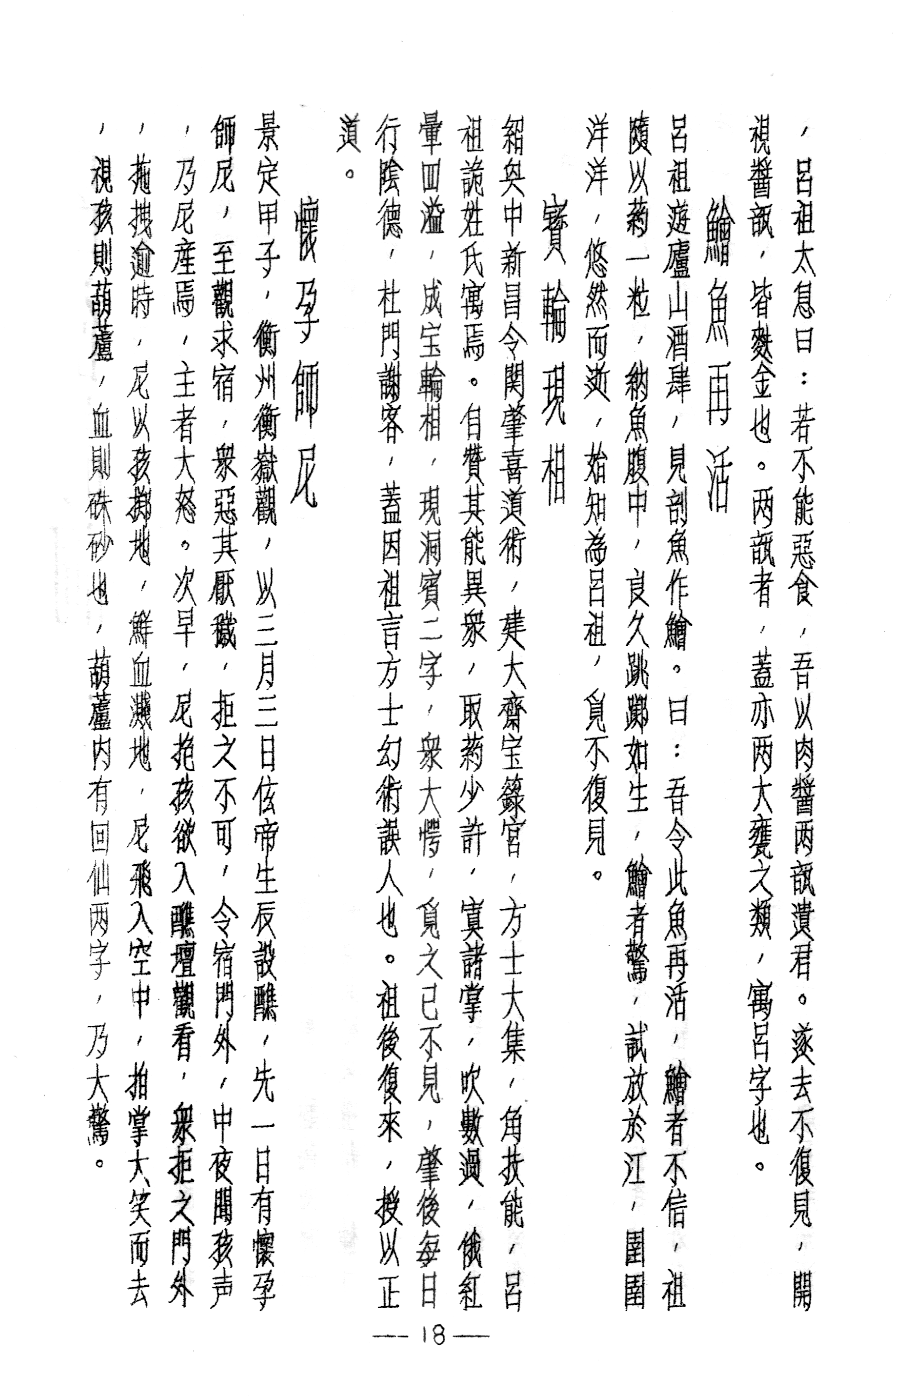 ，呂祖太息曰：若不能惡食，吾以肉醬两瓿遺君。遂去不復見，開
視醬瓿，皆麩金也。两瓿者，蓋亦两大甕之類，寓呂字也。
鱠魚再活
呂祖遊廬山酒肆，見剖魚作鱠。曰：吾令此魚再活，鱠者不信，祖
隨以葯一粒，納魚腹中，良久跳躑如生，鱠者驚，試放於江，圉圉
洋洋，悠然而逝，始知為呂祖，覓不復見。
寳輪現相
紹興中新昌令関肇喜道術，建大齋宝籙宮，方士大集，角技能，呂
祖詭姓氏寓焉。自贊其能異衆，取葯少許，寘諸掌，吹數過，俄紅
暈四溢，成宝輪相，現洞賓二字，衆大愕，覓之已不見，肇後每日
行陰德，杜門謝客，蓋因祖言方士幻術誤人也。祖後復來，授以正
道。
懷孕師尼
景定甲子，衡州衡嶽觀，以三月三日伭帝生辰設醮，先一日有懷孕
師尼，至觀求宿，衆惡其厭穢，拒之不可，令宿門外，中夜聞孩声
，乃尼産焉，主者大怒。次早，尼抱孩欲入醮壇觀看，衆拒之門外
，拖拽逾時，尼以孩擲地，鮮血濺地，尼飛入空中，拍掌大笑而去
，視孩則葫蘆，血則硃砂也，葫蘆内有回仙两字，乃大驚。
—18—